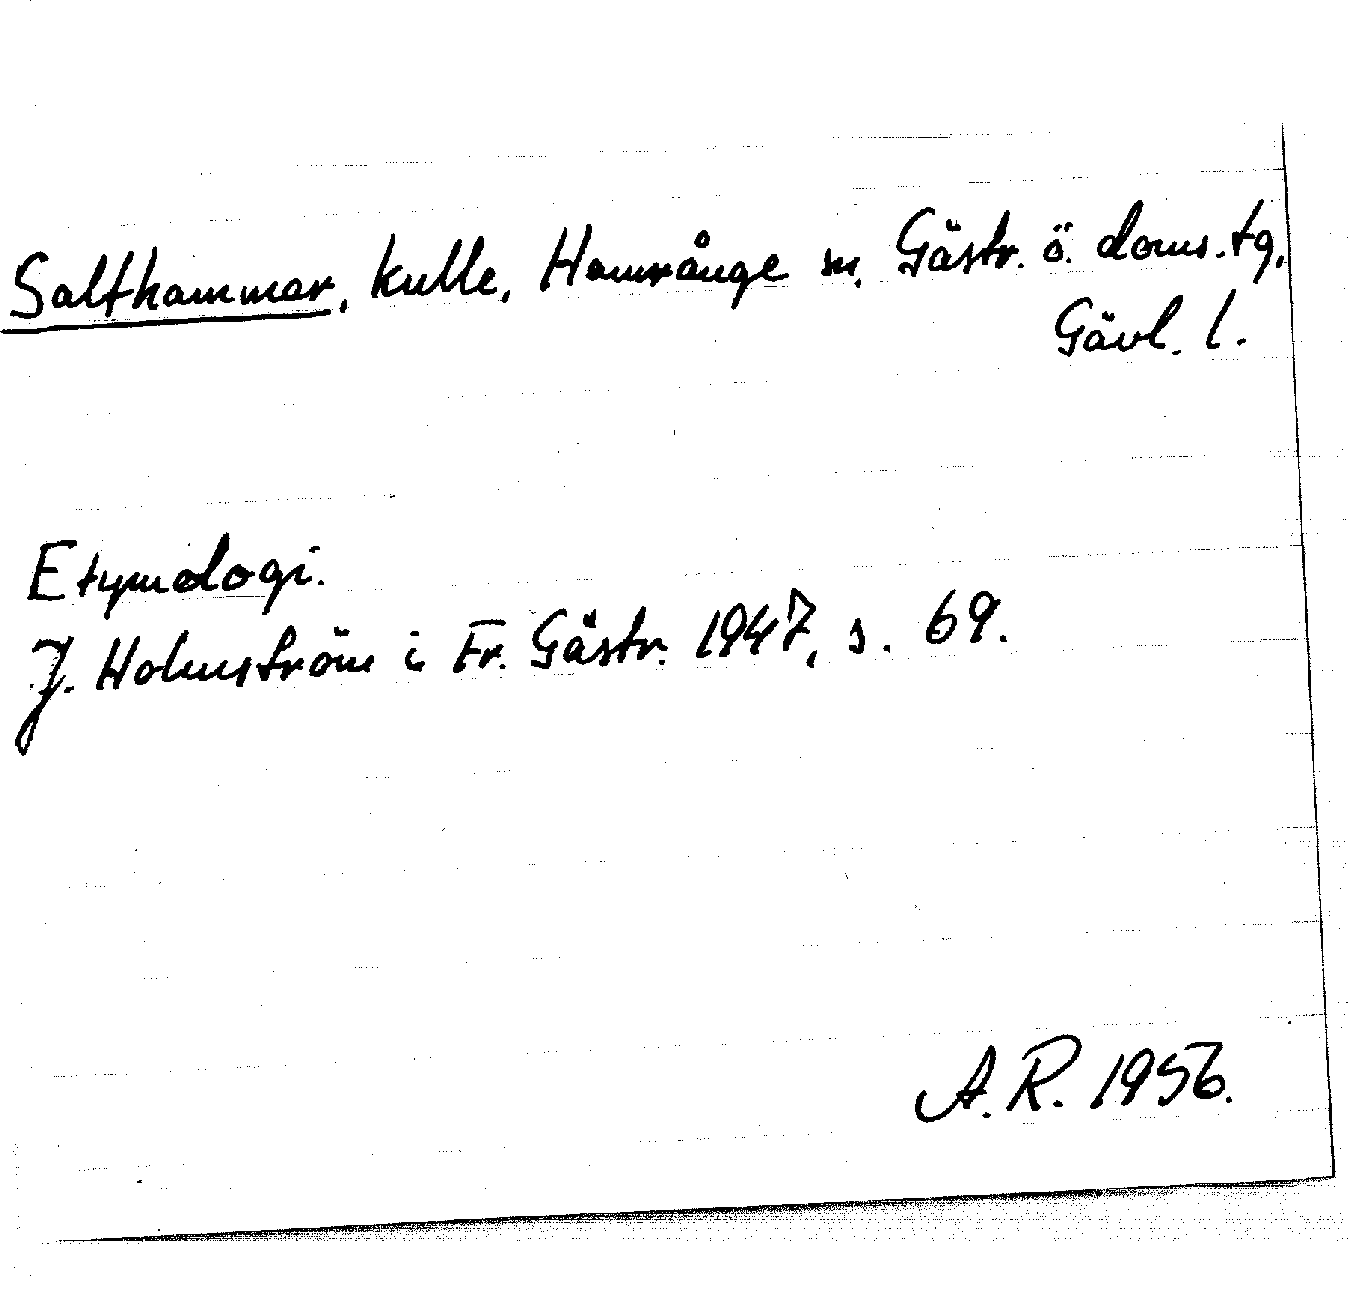 Salthammar, kulle, Hamrånge sn, Gästr. ö. doms.tg,
Gävl. l.
Etymologi.
J. Holmström i Fr. Gästr. 1947, s. 69.
A.R. 1956.